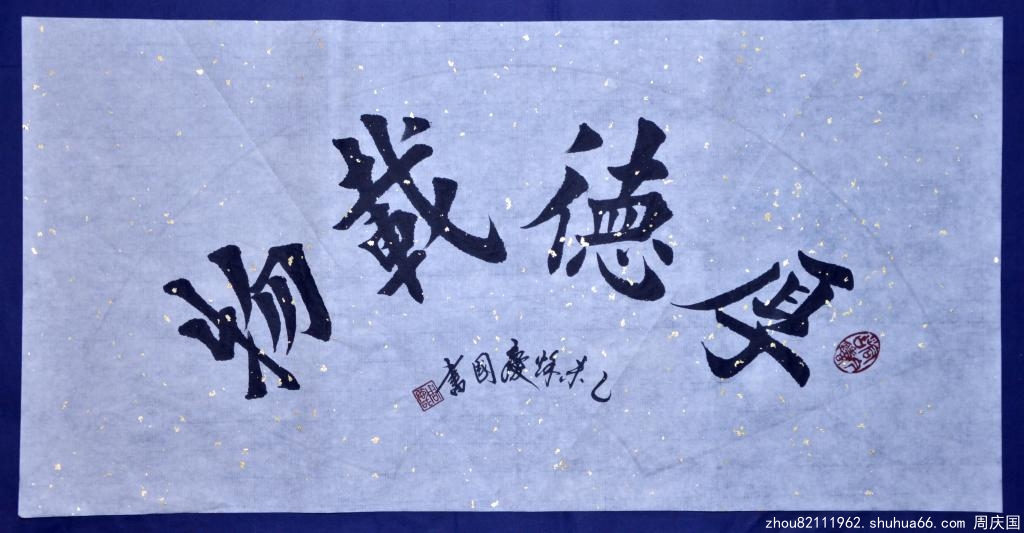 厚德載物
乙未秋慶國書
zhou82111962.shuhua66.com 周庆国